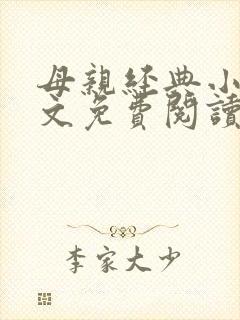 母親経典小
文免費閱讀
李家大少